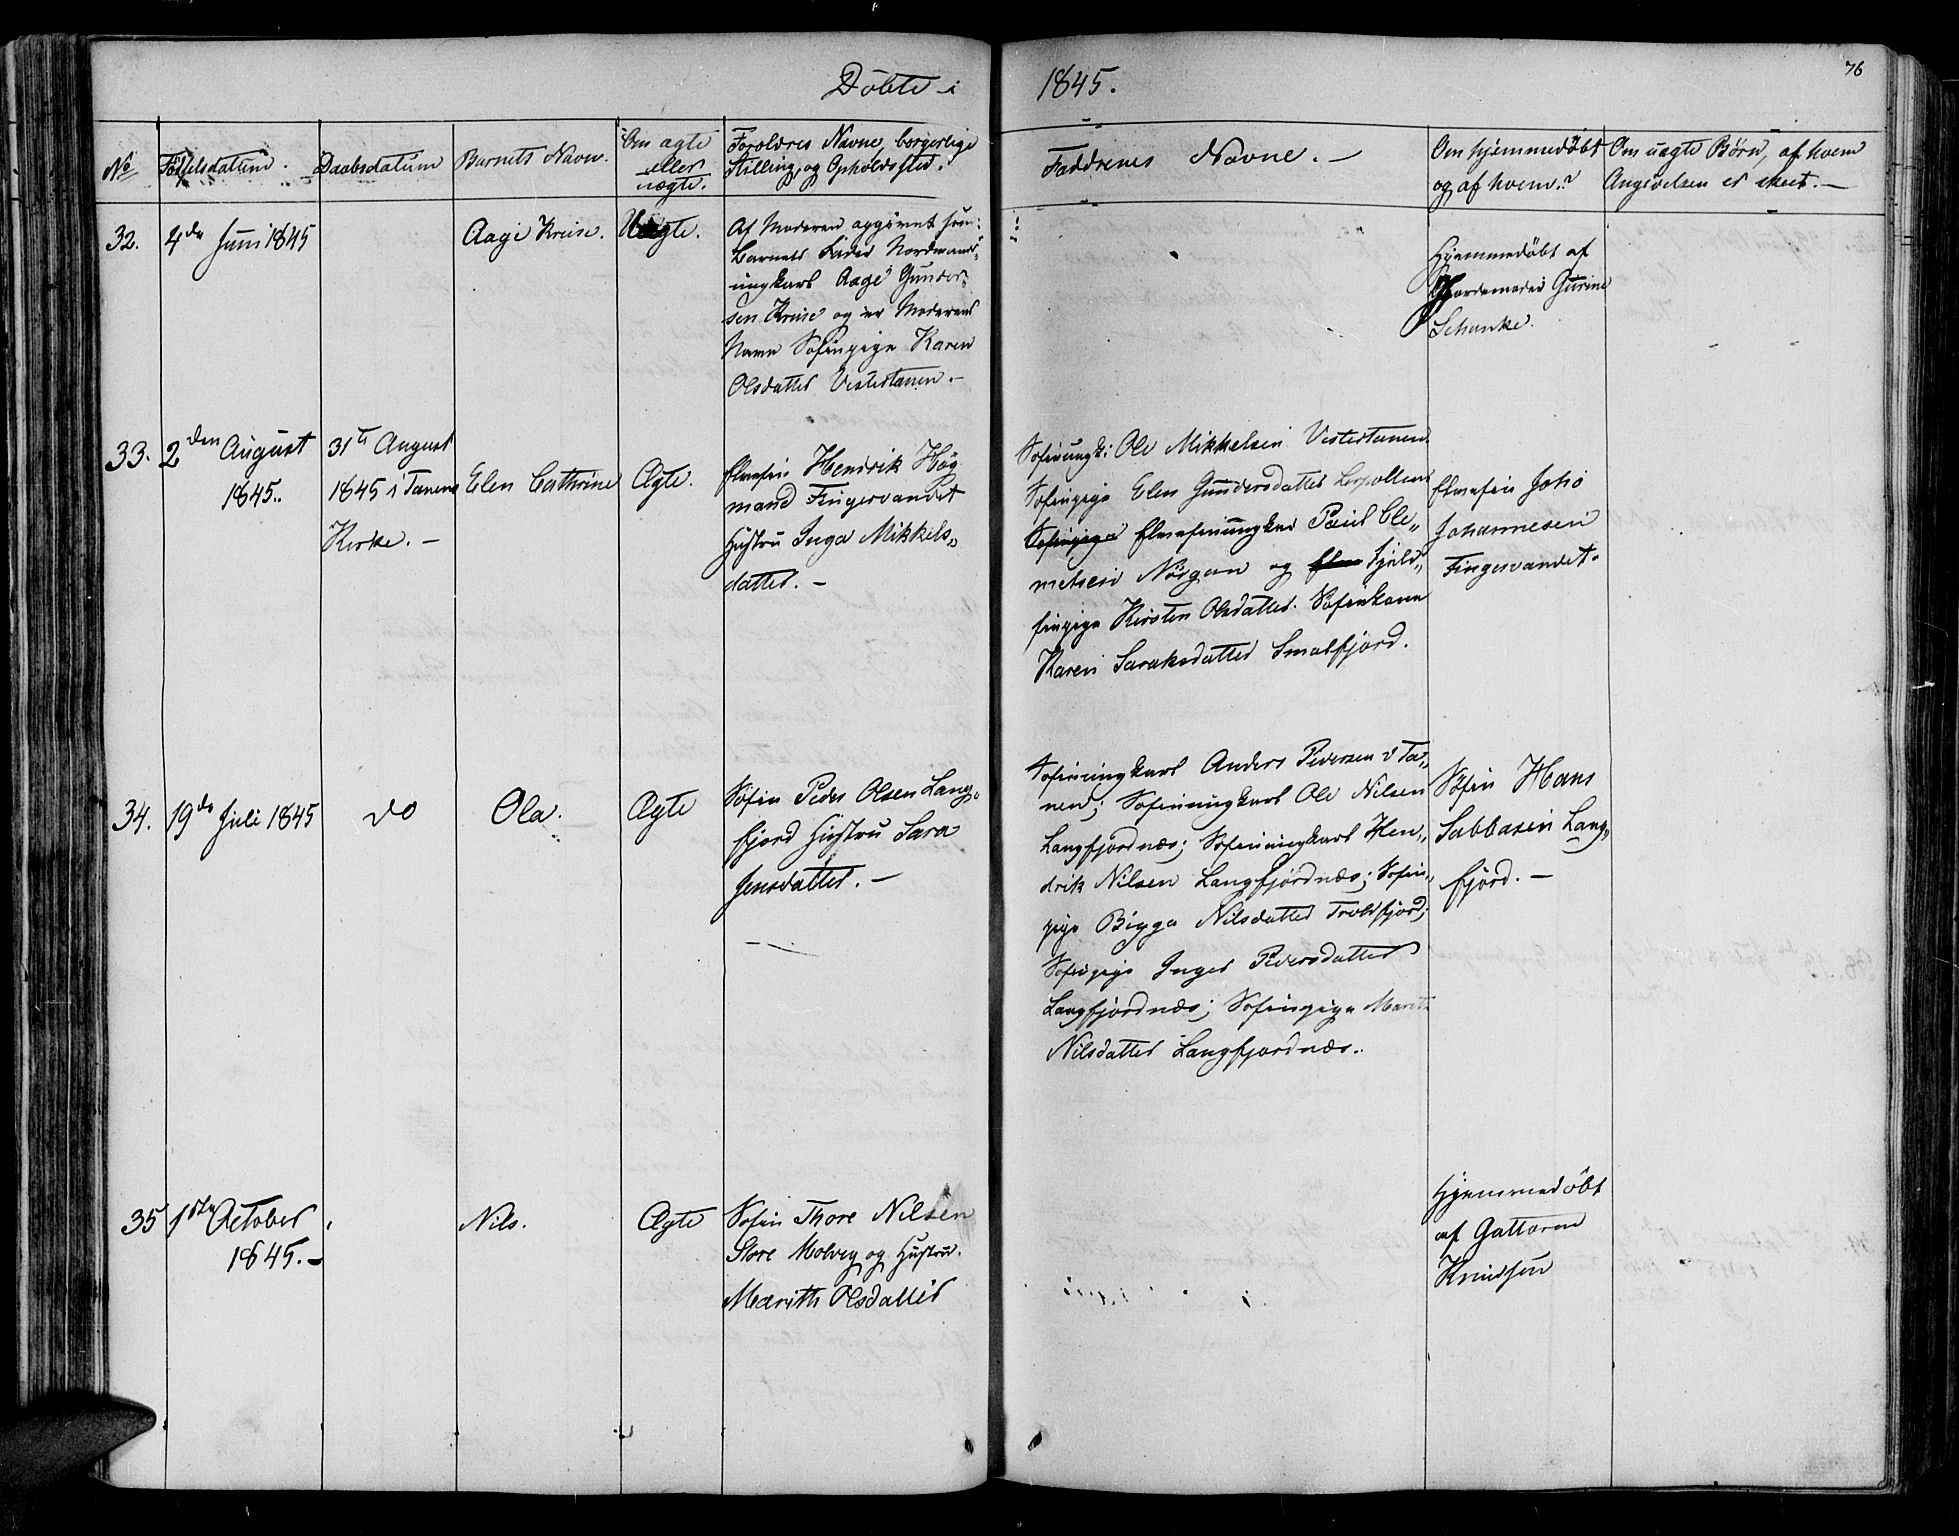 Döbte i 1845.
76
No
Födselsdatum.
Daabsdatum
Barnets Navn.
Om ægte
eller
uægte.
Foroldres Navne, borgerlige
Stilling, og Opholdssted.
Faddrenes Navne. —
Om hjemmedöbt
og af hvem.?
Om uægte Börn, af hvem
Angivelsen er skeet. —
32.
4de Juni 1845
Aage Kruse.
Uægte.
Af Moderen opgivet som
Barnets Fader Nordmands
ungkarl Aage Gunder-
sen Kruse og er Moderens
Navn Söfinpige Karen
Olsdatter Vestertanen. —
Hjemmedöbt af
Jordemoder Gurine
Schanke.
33.
2den August
1845.
31te August
1845 i Tanens
Kirke. —
Elen Cathrine
Ægte.
Elvefin Hendrik Hög
mand Fingervandet
Hustru Inga Mikkels„
datter. —
Söfinungk: Ole Mikkelsen Vestertanen
Söfinpige Elen Gundersdatter Leerpollen
Söfinpige Elvefinungkar Paul Cle„
metsen Nörgan og Elve Fjeld„
finpige Kirsten Olsdatter. Söfinkone
Karen Saraksdatter Smalfjord.
Elvefin Joho
Johannesen
Fingervandet.
34.
19de Juli 1845
do
Ola.
Ægte
Söfin Peder Olsen Lang„
fjord Hustru Sara
Jensdatter. —
Söfinungkarl Anders Pedersen i Ta„
nen; Söfinungkarl Ole Nilsen
Langfjordnæs; Söfinungkarl Hen„
drik Nilsen Langfjordnæs; Söfin„
pige Bigga Nilsdatter Troldfjord;
Söfinpige Inger Pedersdatter
Langfjordnæs; Söfinpige Marit
Nilsdatter Langfjordnæs.
Söfin Hans
Sabbasen Lang„
fjord. —
35
1ste October
1845. —
Nils.
Ægte
Söfin Thore Nilsen
Store Molvig og Hustru.
Marith Olsdatter
Hjemmedöbt
af Gattarm
Knudsen